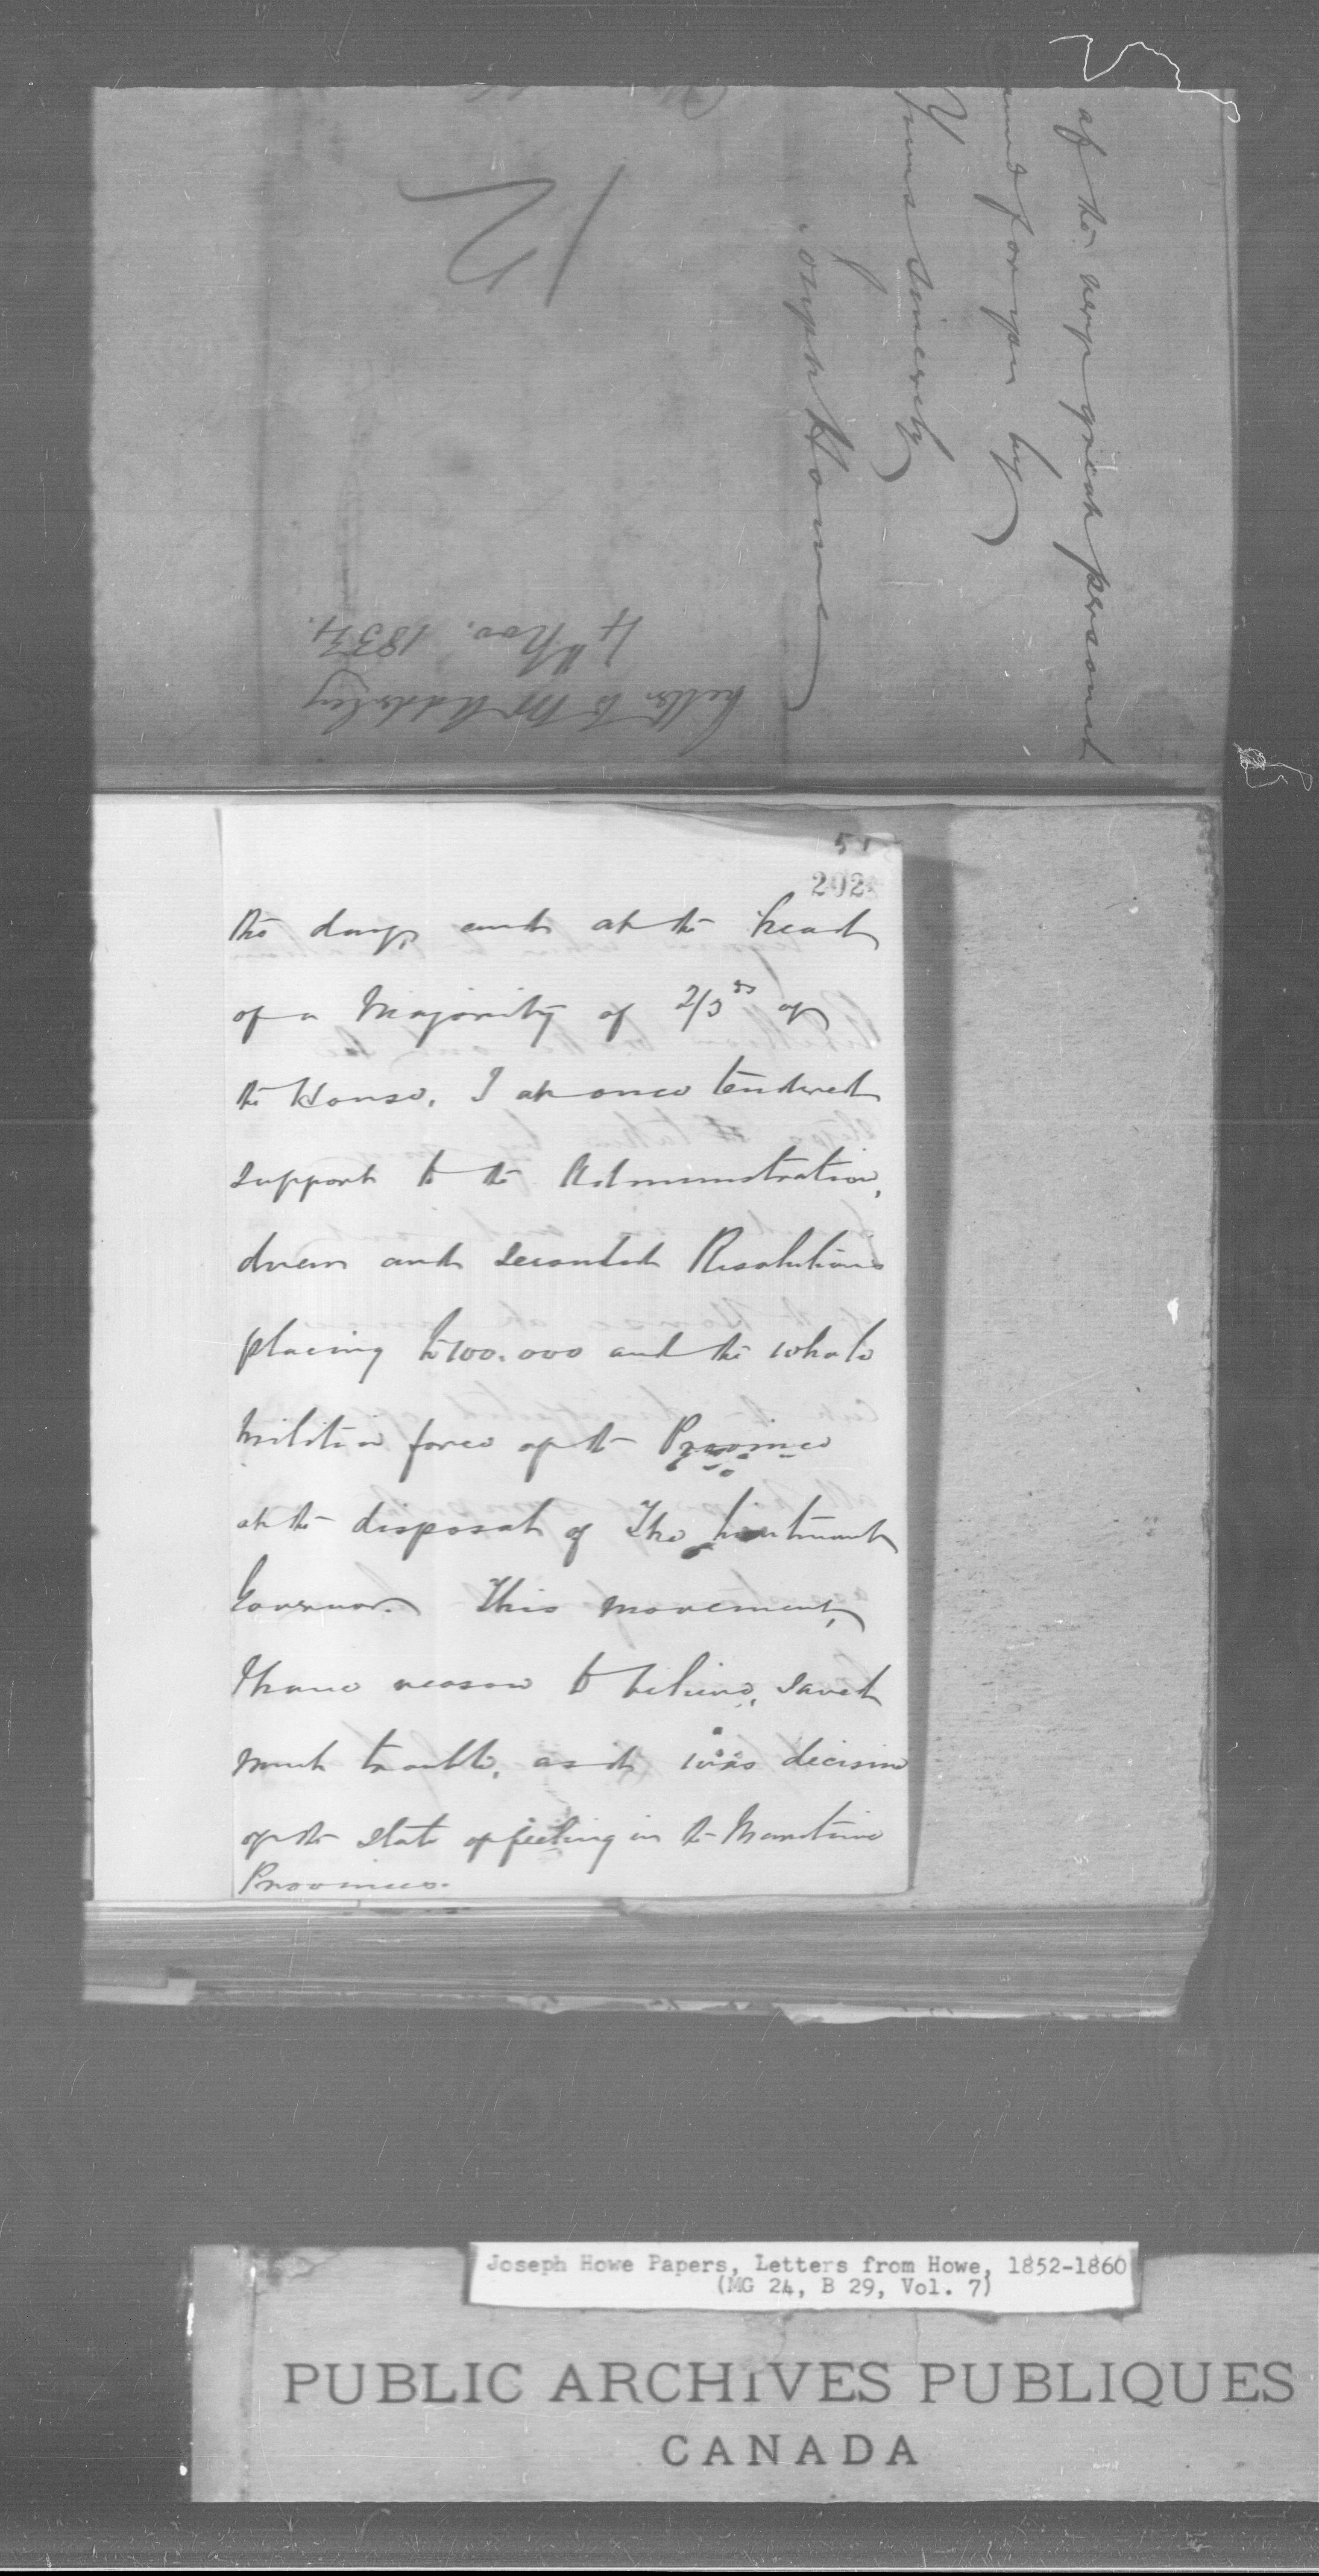 of the very great personal
for you by
Yours sincerely
Joseph Howe
12
Letter to Mr Adderley
4th Nov. 1854.
51
202
the day, and at the head
of a Majority of 2/3ds of
the House, I at once tendered
support to the Administration,
drew and seconded Resolutions
placing £100.000 and the whole
Militia force of the Province
at the disposal of The Lieutenant
Governor. This movement,
I have reason to believe, saved
much trouble, as it was decisive
of the state of feeling in the Maritime
Provinces.
Joseph Howe Papers, Letters from Howe, 1852-1860
(MG 24, B 29, Vol. 7)
PUBLIC ARCHIVES PUBLIQUES
CANADA